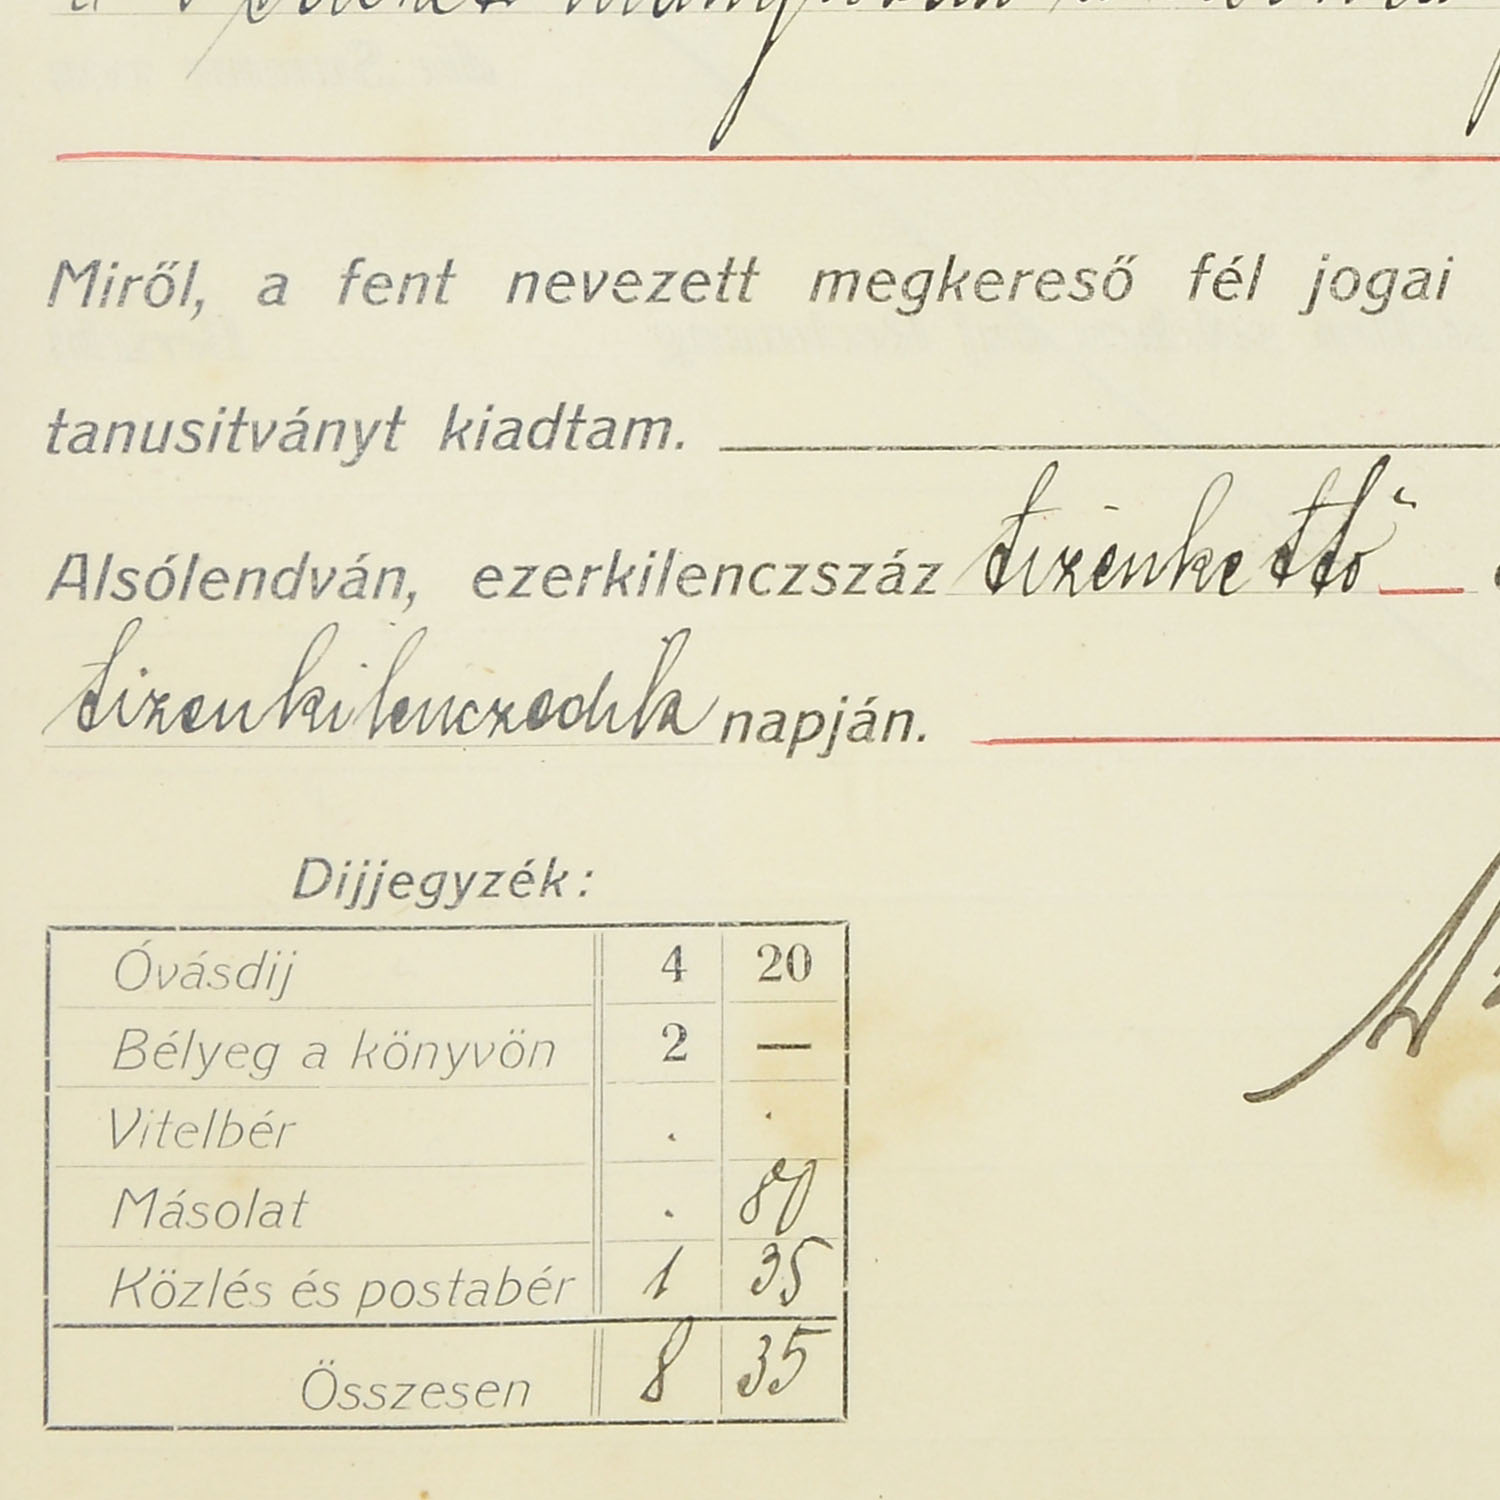 hiányában
Miről, a fent nevezett megkereső fél jogai
tanusitványt kiadtam.
Alsólendván, ezerkilenczszáz tizenkettő
tizenkilenczedik napján.
Dijjegyzék:
Óvásdij 4 20
Bélyeg a könyvön 2 —
Vitelbér . .
Másolat . 80
Közlés és postabér 1 35
Összesen 8 35